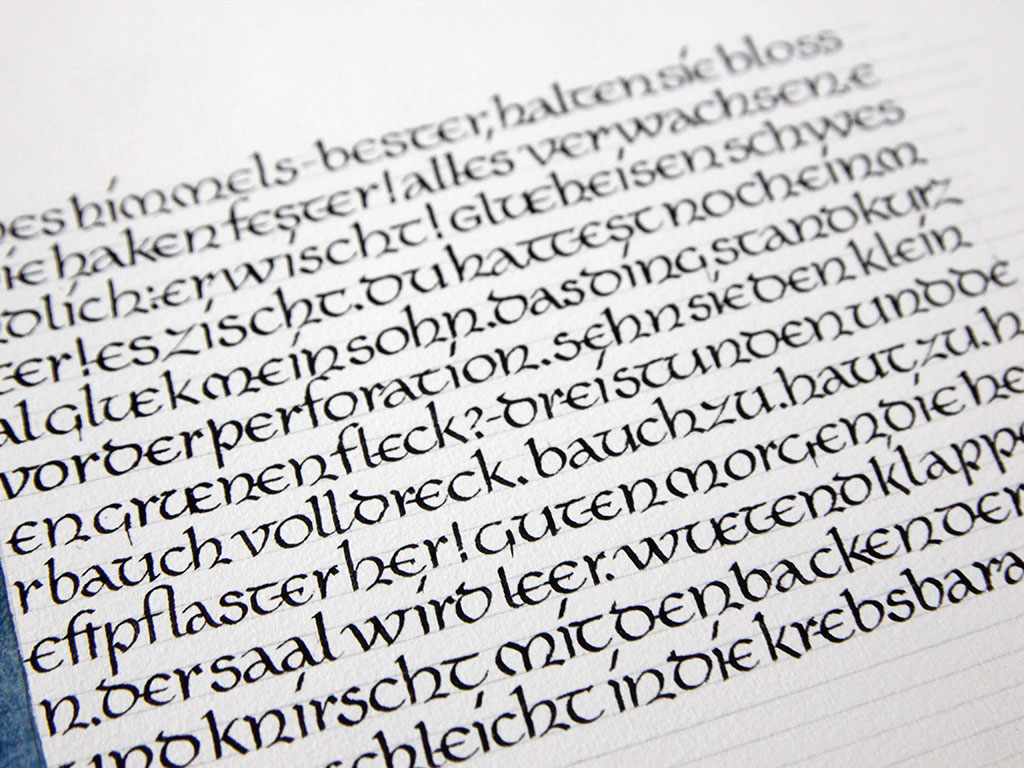 es himmels-bester, halten sie bloss
ie haken fester! alles verwachsen.e
dlich: erwischt! glueheisen schwes
ter! es zischt. du hattest noch ein m
al gluek mein sohn. das ding stand kurz
vor der perforation. sehn sie den klein
en gruenen fleck?-drei stunden und de
r bauch voll dreck. bauch zu. haut zu. h
eftpflaster her! guten morgen die he
n. der saal wird leer. wuetend klapp
und knirscht mit den backen der
schleicht in die krebsbara